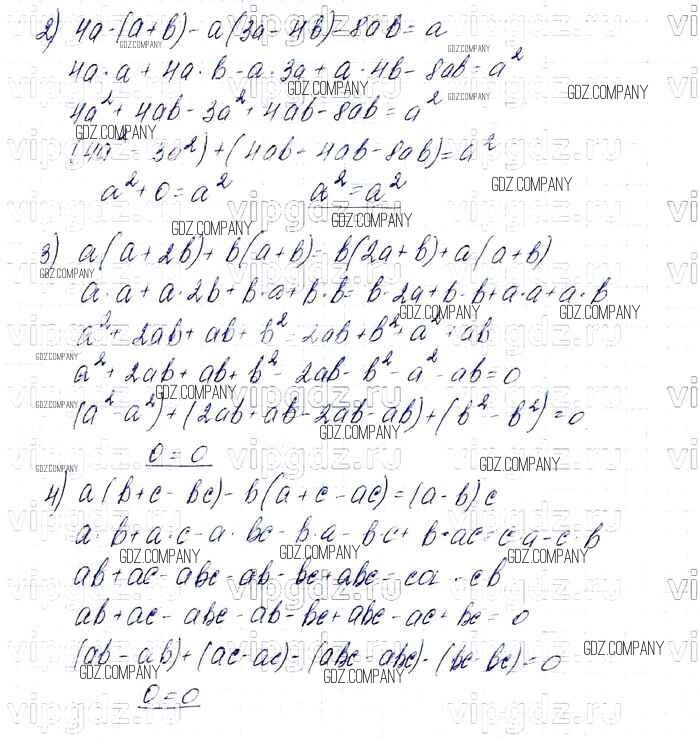 2) 4a·(a+b) - a(3a-4b)-8ab = a
4a·a + 4a·b - a·3a + a·4b - 8ab = a²
4a² + 4ab - 3a² + 4ab - 8ab = a²
(4a² - 3a²) + (4ab - 4ab - 8ab) = a²
a² + 0 = a² a² = a²
3) a(a+2b) + b(a+b) = b(2a+b) + a(a+b)
a·a + a·2b + b·a + b·b = b·2a + b·b + a·a + a·b
a² + 2ab + ab + b² = 2ab + b² + a² + ab
a² + 2ab + ab + b² - 2ab - b² - a² - ab = 0
(a² - a²) + (2ab + ab - 2ab - ab) + (b² - b²) = 0
0 = 0
4) a(b+c-bc) - b(a+c-ac) = (a-b)c
a·b + a·c - a·bc - b·a - b·c + b·ac = c·a - c·b
ab + ac - abc - ab - bc + abc = ca - cb
ab + ac - abc - ab - bc + abc - ac + bc = 0
(ab - ab) + (ac - ac) - (abc - abc) - (bc - bc) = 0
0 = 0
GDZ.COMPANY
vipgdz.ru